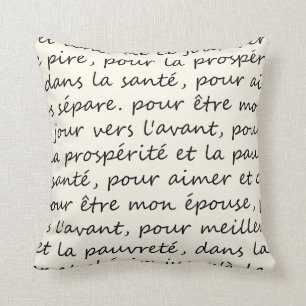 pire, pour la prospér
dans la santé, pour ai
sépare. pour être mon
jour vers l'avant, pou
la prospérité et la pau
santé, pour aimer et c
our être mon épouse,
l'avant, pour meille
et la pauvreté, dans la